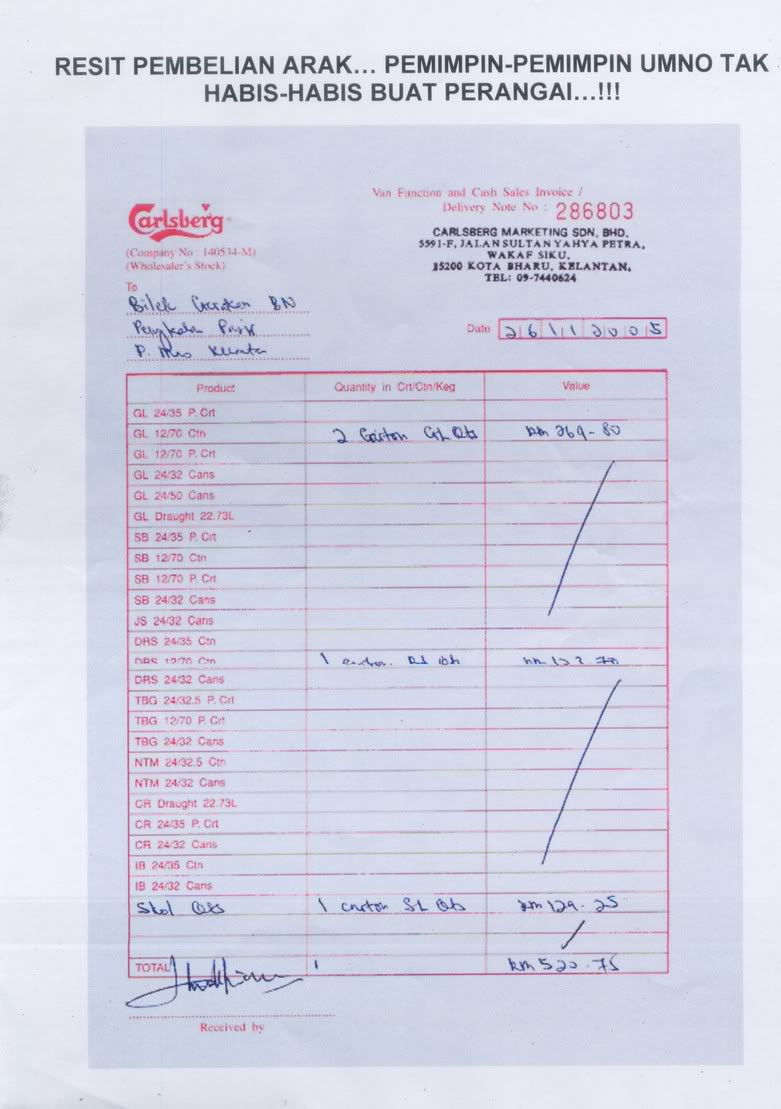 RESIT PEMBELIAN ARAK... PEMIMPIN-PEMIMPIN UMNO TAK
HABIS-HABIS BUAT PERANGAI...!!!
Carlsberg
(Company No : 140534-M)
(Wholesaler's Stock)
Van Function and Cash Sales Invoice /
Delivery Note No : 286803
CARLSBERG MARKETING SDN, BHD.
5591-F, JALAN SULTAN YAHYA PETRA,
WAKAF SIKU,
15200 KOTA BHARU, KELANTAN,
TEL: 09-7440624
To
Bilek Gerakan BN
Pengkalan Pasir
Date 26112005
Product Quantity in Crt/Ctn/Keg Value
GL 24/35 P. Crt
GL 12/70 Ctn 2 Carton GL Qts RM 269-80
GL 12/70 P. Crt
GL 24/32 Cans
GL 24/50 Cans
GL Draught 22.73L
SB 24/35 P. Crt
SB 12/70 Ctn
SB 12/70 P. Crt
SB 24/32 Cans
JS 24/32 Cans
DRS 24/35 Ctn
DRS 12/70 Ctn 1
DRS 24/32 Cans
TBG 24/32.5 P. Crt
TBG 12/70 P. Crt
TBG 24/32 Cans
NTM 24/32.5 Ctn
NTM 24/32 Cans
CR Draught 22.73L
CR 24/35 P. Crt
CR 24/32 Cans
IB 24/35 Ctn
IB 24/32 Cans
Skol Qts 1 carton SL Qts RM 129.25
TOTAL RM 520.75
Received by